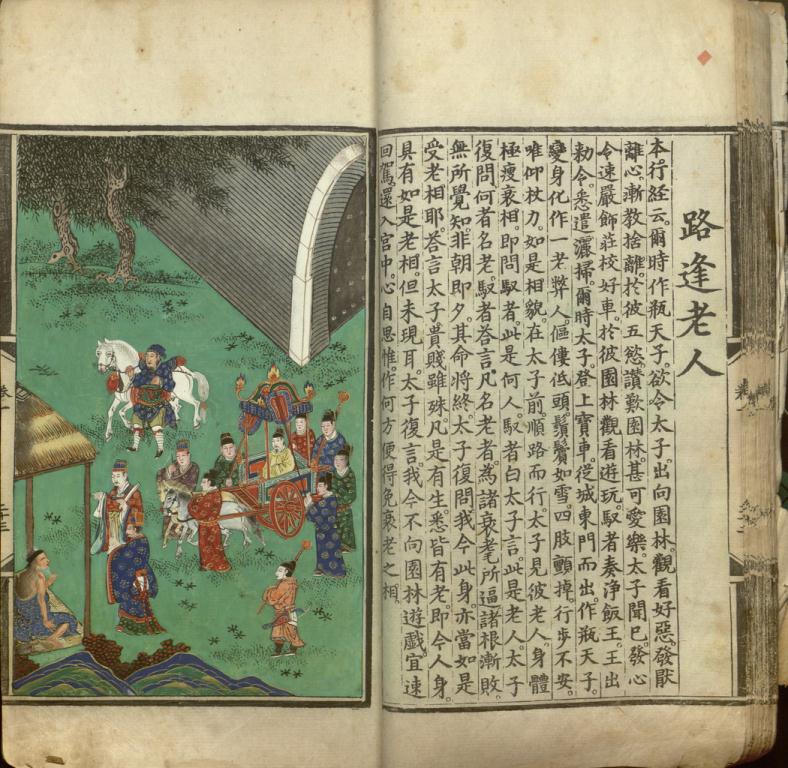 路逢老人
本行經云。爾時作瓶天子。欲令太子出向園林。觀看好惡。發厭
離心。漸教捨離。於彼五慾讚歎園林。甚可愛樂。太子聞已。發心
令速嚴飾莊校好車。於彼園林觀看遊玩。馭者奏淨飯王。王出
勅令。悉遣灑掃。爾時太子。登上寶車。從城東門而出。作瓶天子。
變身化作一老弊人。傴僂低頭。鬚鬢如雪。四肢顫掉。行步不安。
唯仰杖力。如是相貌。在太子前。順路而行。太子見彼老人。身體
極瘦衰相。即問馭者。此是何人。馭者白太子言。此是老人。太子
復問。何者名老。馭者答言。凡名老者。為諸衰耄所逼。諸根漸敗。
無所覺知。非朝即夕。其命將終。太子復問。我今此身。亦當如是
受老相耶。答言太子。貴賤雖殊。凡是有生。悉皆有老。即今人身。
具有如是老相。但未現耳。太子復言。我今不向園林遊戲。宜速
回駕。還入宮中。心自思惟。作何方便。得免衰老之相。
卷一
二十三